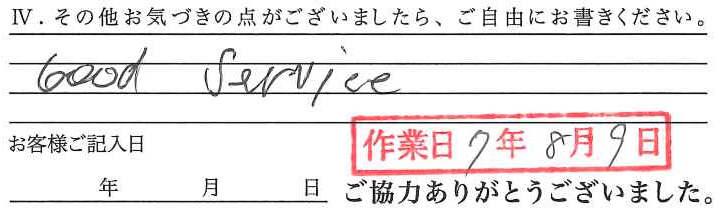 Ⅳ．その他お気づきの点がございましたら、ご自由にお書きください。
Good Service
お客様ご記入日
作業日 7年 8月 9日
年 月 日 ご協力ありがとうございました。